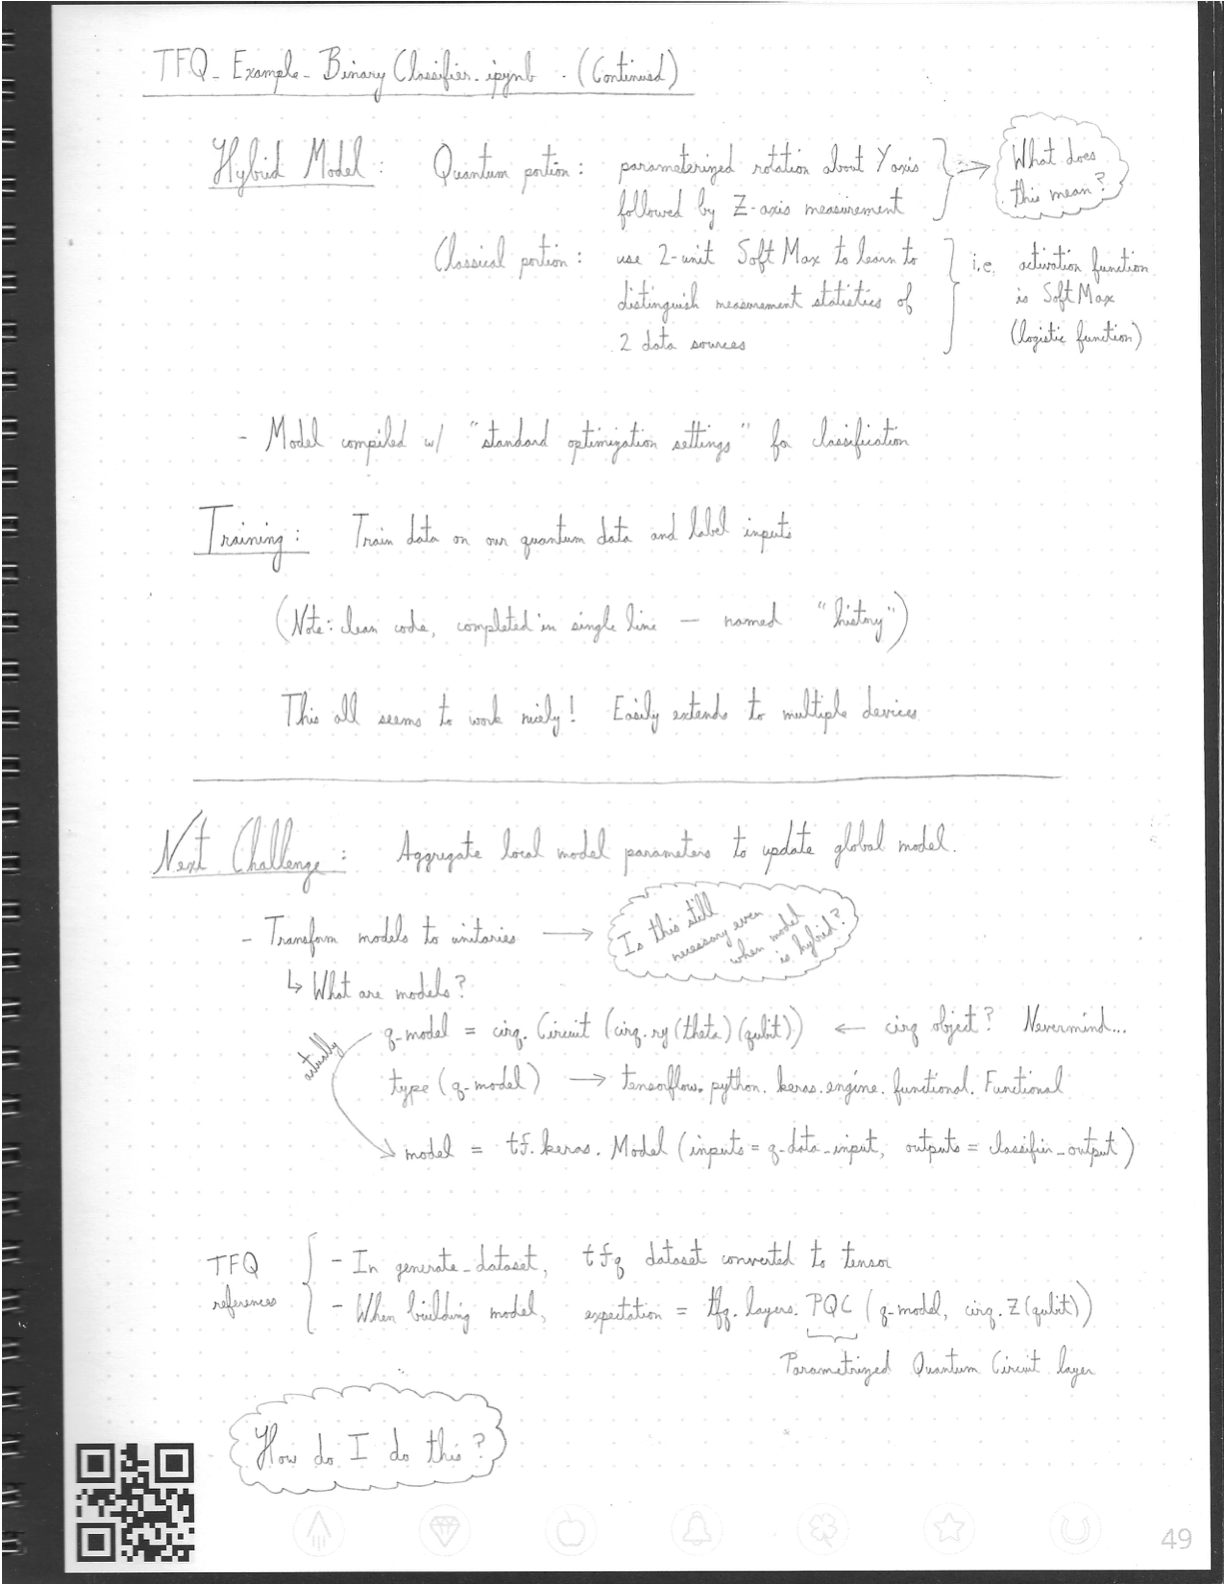 TFQ_Example_Binary Classifier.ipynb . (Continued)
Hybrid Model : Quantum portion : parameterized rotation about Y axis
followed by Z-axis measurement
What does
this mean?
Classical portion : use 2-unit SoftMax to learn to
distinguish measurement statistics of
2 data sources
i.e. activation function
is SoftMax
(logistic function)
- Model compiled w/ "standard optimization settings" for classification
Training : Train data on our quantum data and label inputs
(Note: clean code, completed in single line — named "history")
This all seems to work nicely! Easily extends to multiple devices
Next Challenge : Aggregate local model parameters to update global model.
- Transform models to unitaries →
Is this still
necessary even
when model
is hybrid?
↳ What are models?
actually
q_model = cirq.Circuit (cirq.ry(theta)(qubit)) ← cirq object? Nevermind...
type (q_model) → tensorflow.python.keras.engine.functional.Functional
model = tf.keras.Model (inputs = q_data_input, outputs = classifier_output)
TFQ
references
- In generate_dataset, tfq dataset converted to tensor
- When building model, expectation = tfq.layers.PQC (q_model, cirq.Z(qubit))
Parametrized Quantum Circuit layer
How do I do this?
49